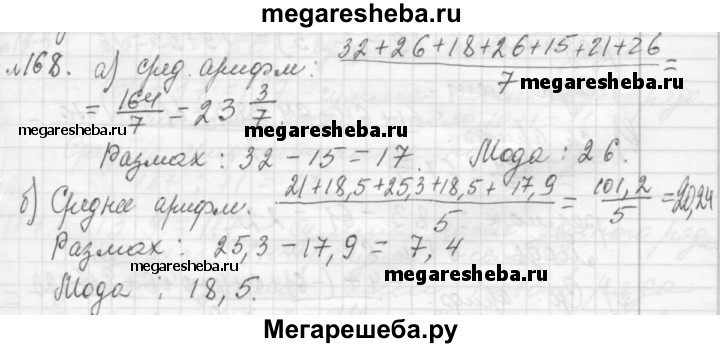 megaresheba.ru
№168. а) сред. арифм: (32+26+18+26+15+21+26)/7 =
= 164/7 = 23 3/7.
megaresheba.ru
megaresheba.ru
Размах: 32 - 15 = 17 Мода: 26.
б) Среднее арифм. (21+18,5+25,3+18,5+17,9)/5 = 101,2/5 = 20,24
Размах: 25,3 - 17,9 = 7,4
megaresheba.ru
megaresheba.ru
Мода: 18,5.
Мегарешеба.ру